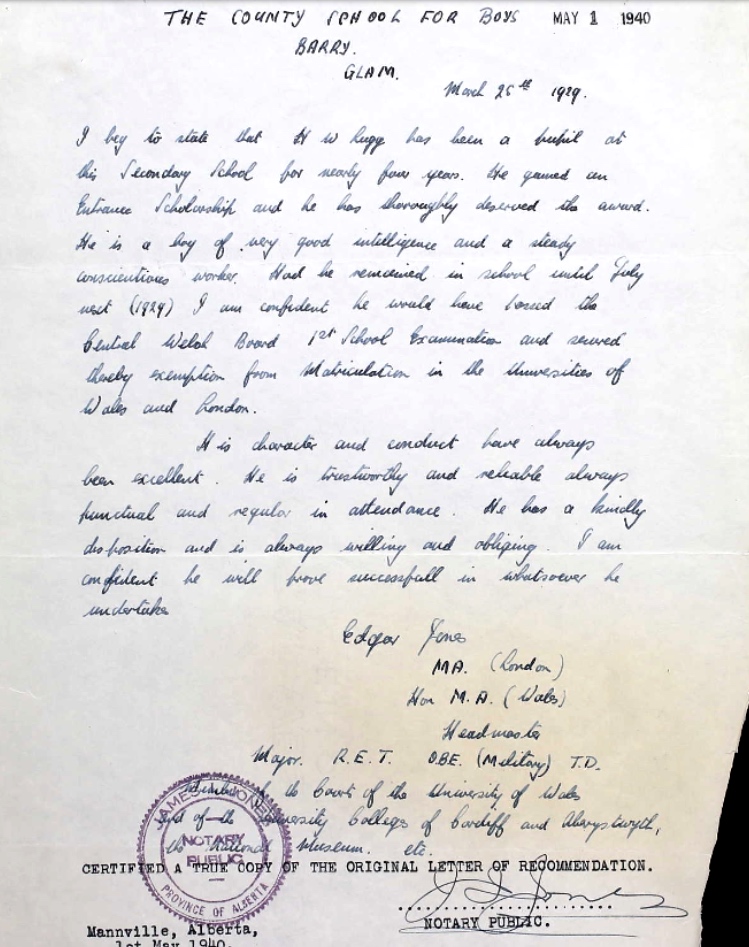 THE COUNTY SCHOOL FOR BOYS MAY 1 1940
BARRY.
GLAM.
March 25th 1929.
I beg to state that H W Rugg has been a pupil at
this Secondary School for nearly four years. He gained an
Entrance Scholarship and he has thoroughly deserved its award.
He is a boy of very good intelligence and a steady
conscientious worker. Had he remained in school until July
next (1929) I am confident he would have passed the
Central Welsh Board 1st School Examination and secured
thereby exemption from Matriculation in the Universities of
Wales and London.
His character and conduct have always
been excellent. He is trustworthy and reliable always
punctual and regular in attendance. He has a kindly
disposition and is always willing and obliging. I am
confident he will prove successfull in whatsoever he
undertakes
Edgar Jones
MA. (London)
Hon M.A. (Wales)
Headmaster
Major. R.E.T. OBE. (Military) T.D.
Member of the Court of the University of Wales
and of the University Colleges of Cardiff and Aberystwyth,
the National Museum. etc.
JAMES JONES
NOTARY
PUBLIC
PROVINCE OF ALBERTA
CERTIFIED A TRUE COPY OF THE ORIGINAL LETTER OF RECOMMENDATION.
Jones
NOTARY PUBLIC.
Mannville, Alberta,
1st May 1940.